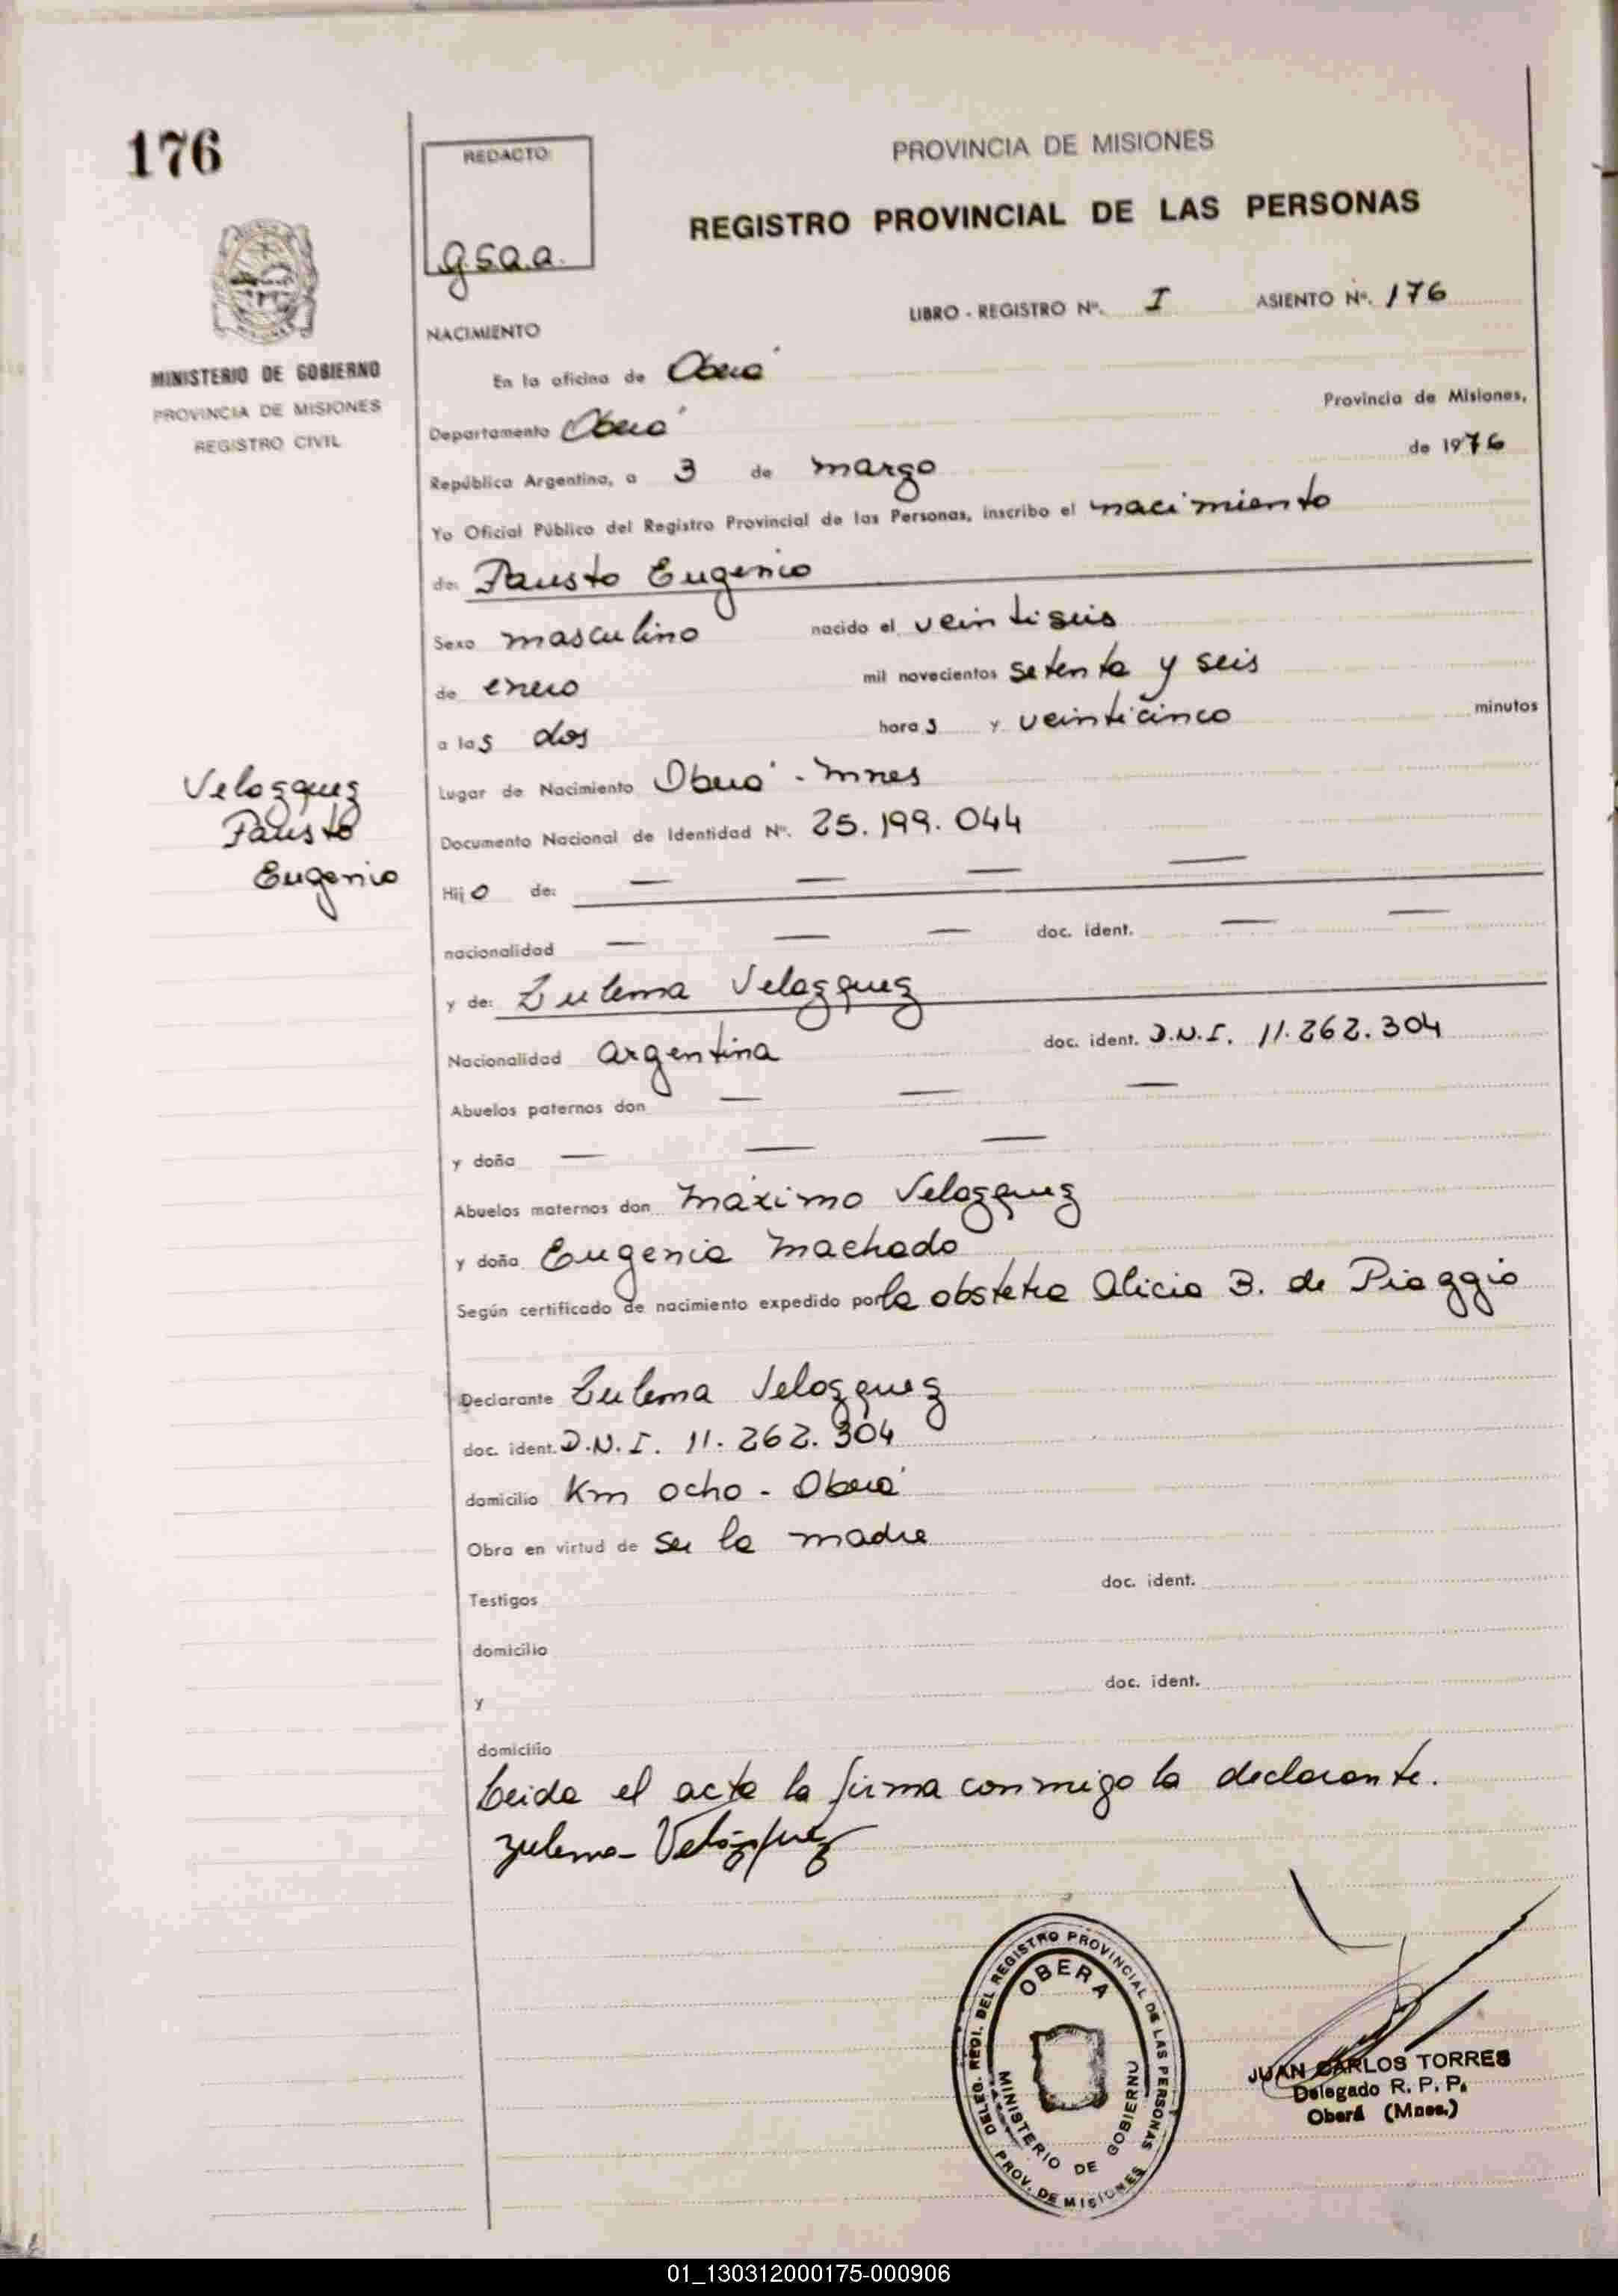 176
REDACTO
g.s.a.a.
PROVINCIA DE MISIONES
REGISTRO PROVINCIAL DE LAS PERSONAS
LIBRO - REGISTRO Nº. I ASIENTO Nº. 176
MINISTERIO DE GOBIERNO
PROVINCIA DE MISIONES
REGISTRO CIVIL
NACIMIENTO
En la oficina de Oberá
Departamento Oberá Provincia de Misiones,
República Argentina, a 3 de marzo de 1976
Yo Oficial Público del Registro Provincial de las Personas, inscribo el nacimiento
de: Fausto Eugenio
Sexo masculino nacido el veintiseis
de enero mil novecientos setenta y seis
a las dos horas y veinticinco minutos
Velazquez
Fausto
Eugenio
Lugar de Nacimiento Oberá - Mnes
Documento Nacional de Identidad Nº. 25.199.044
Hijo de: — — — —
nacionalidad — — — doc. ident. — —
y de: Zulema Velazquez
Nacionalidad argentina doc. ident. D.N.I. 11.262.304
Abuelos paternos don — — —
y doña — — —
Abuelos maternos don Máximo Velazquez
y doña Eugenia Machado
Según certificado de nacimiento expedido por la obstetra Alicia B. de Piaggio
Declarante Zulema Velazquez
doc. ident. D.N.I. 11.262.304
domicilio Km ocho - Oberá
Obra en virtud de ser la madre
Testigos doc. ident.
domicilio
y doc. ident.
domicilio
Leida el acta la firma conmigo la declarante.
Zulema Velázquez
DELEG. REGI. DEL REGISTRO PROVINCIAL DE LAS PERSONAS
OBERA
MINISTERIO DE GOBIERNO
PROV. DE MISIONES
JUAN CARLOS TORRES
Delegado R. P. P.
Oberá (Mnes.)
01_130312000175-000906